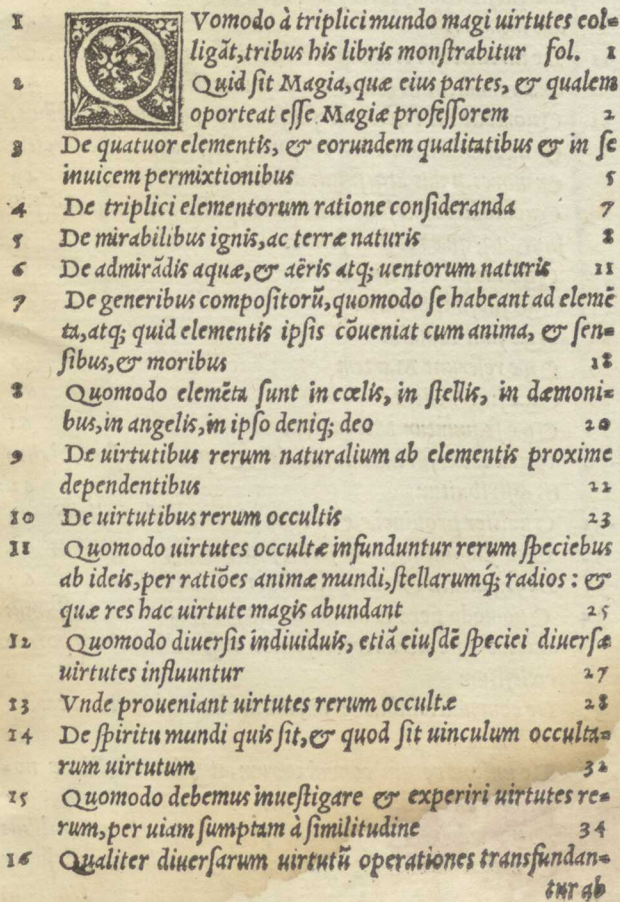 1 QVomodo à triplici mundo magi uirtutes col=
ligãt, tribus his libris monſtrabitur fol. 1
2 Quid ſit Magia, quæ eius partes, & qualem
oporteat eſſe Magiæ profeſſorem 2
3 De quatuor elementis, & eorundem qualitatibus & in ſe
inuicem permixtionibus 5
4 De triplici elementorum ratione conſideranda 7
5 De mirabilibus ignis, ac terræ naturis 8
6 De admirãdis aquæ, & aëris atq; uentorum naturis 11
7 De generibus compoſitorũ, quomodo ſe habeant ad elemẽ
ta, atq; quid elementis ipſis cõueniat cum anima, & ſen=
ſibus, & moribus 18
8 Quomodo elemẽta ſunt in cœlis, in ſtellis, in dæmoni=
bus, in angelis, in ipſo deniq; deo 20
9 De uirtutibus rerum naturalium ab elementis proxime
dependentibus 22
10 De uirtutibus rerum occultis 23
11 Quomodo uirtutes occultæ infunduntur rerum ſpeciebus
ab ideis, per ratiões animæ mundi, ſtellarumq́; radios: &
quæ res hac uirtute magis abundant 25
12 Quomodo diuerſis indiuiduis, etiã eiuſdẽ ſpeciei diuerſæ
uirtutes influuntur 27
13 Vnde proueniant uirtutes rerum occultæ 28
14 De ſpiritu mundi quis ſit, & quod ſit uinculum occulta=
rum uirtutum 32
15 Quomodo debemus inueſtigare & experiri uirtutes re=
rum, per uiam ſumptam à ſimilitudine 34
16 Qualiter diuerſarum uirtutũ operationes transfundan=
tur ab